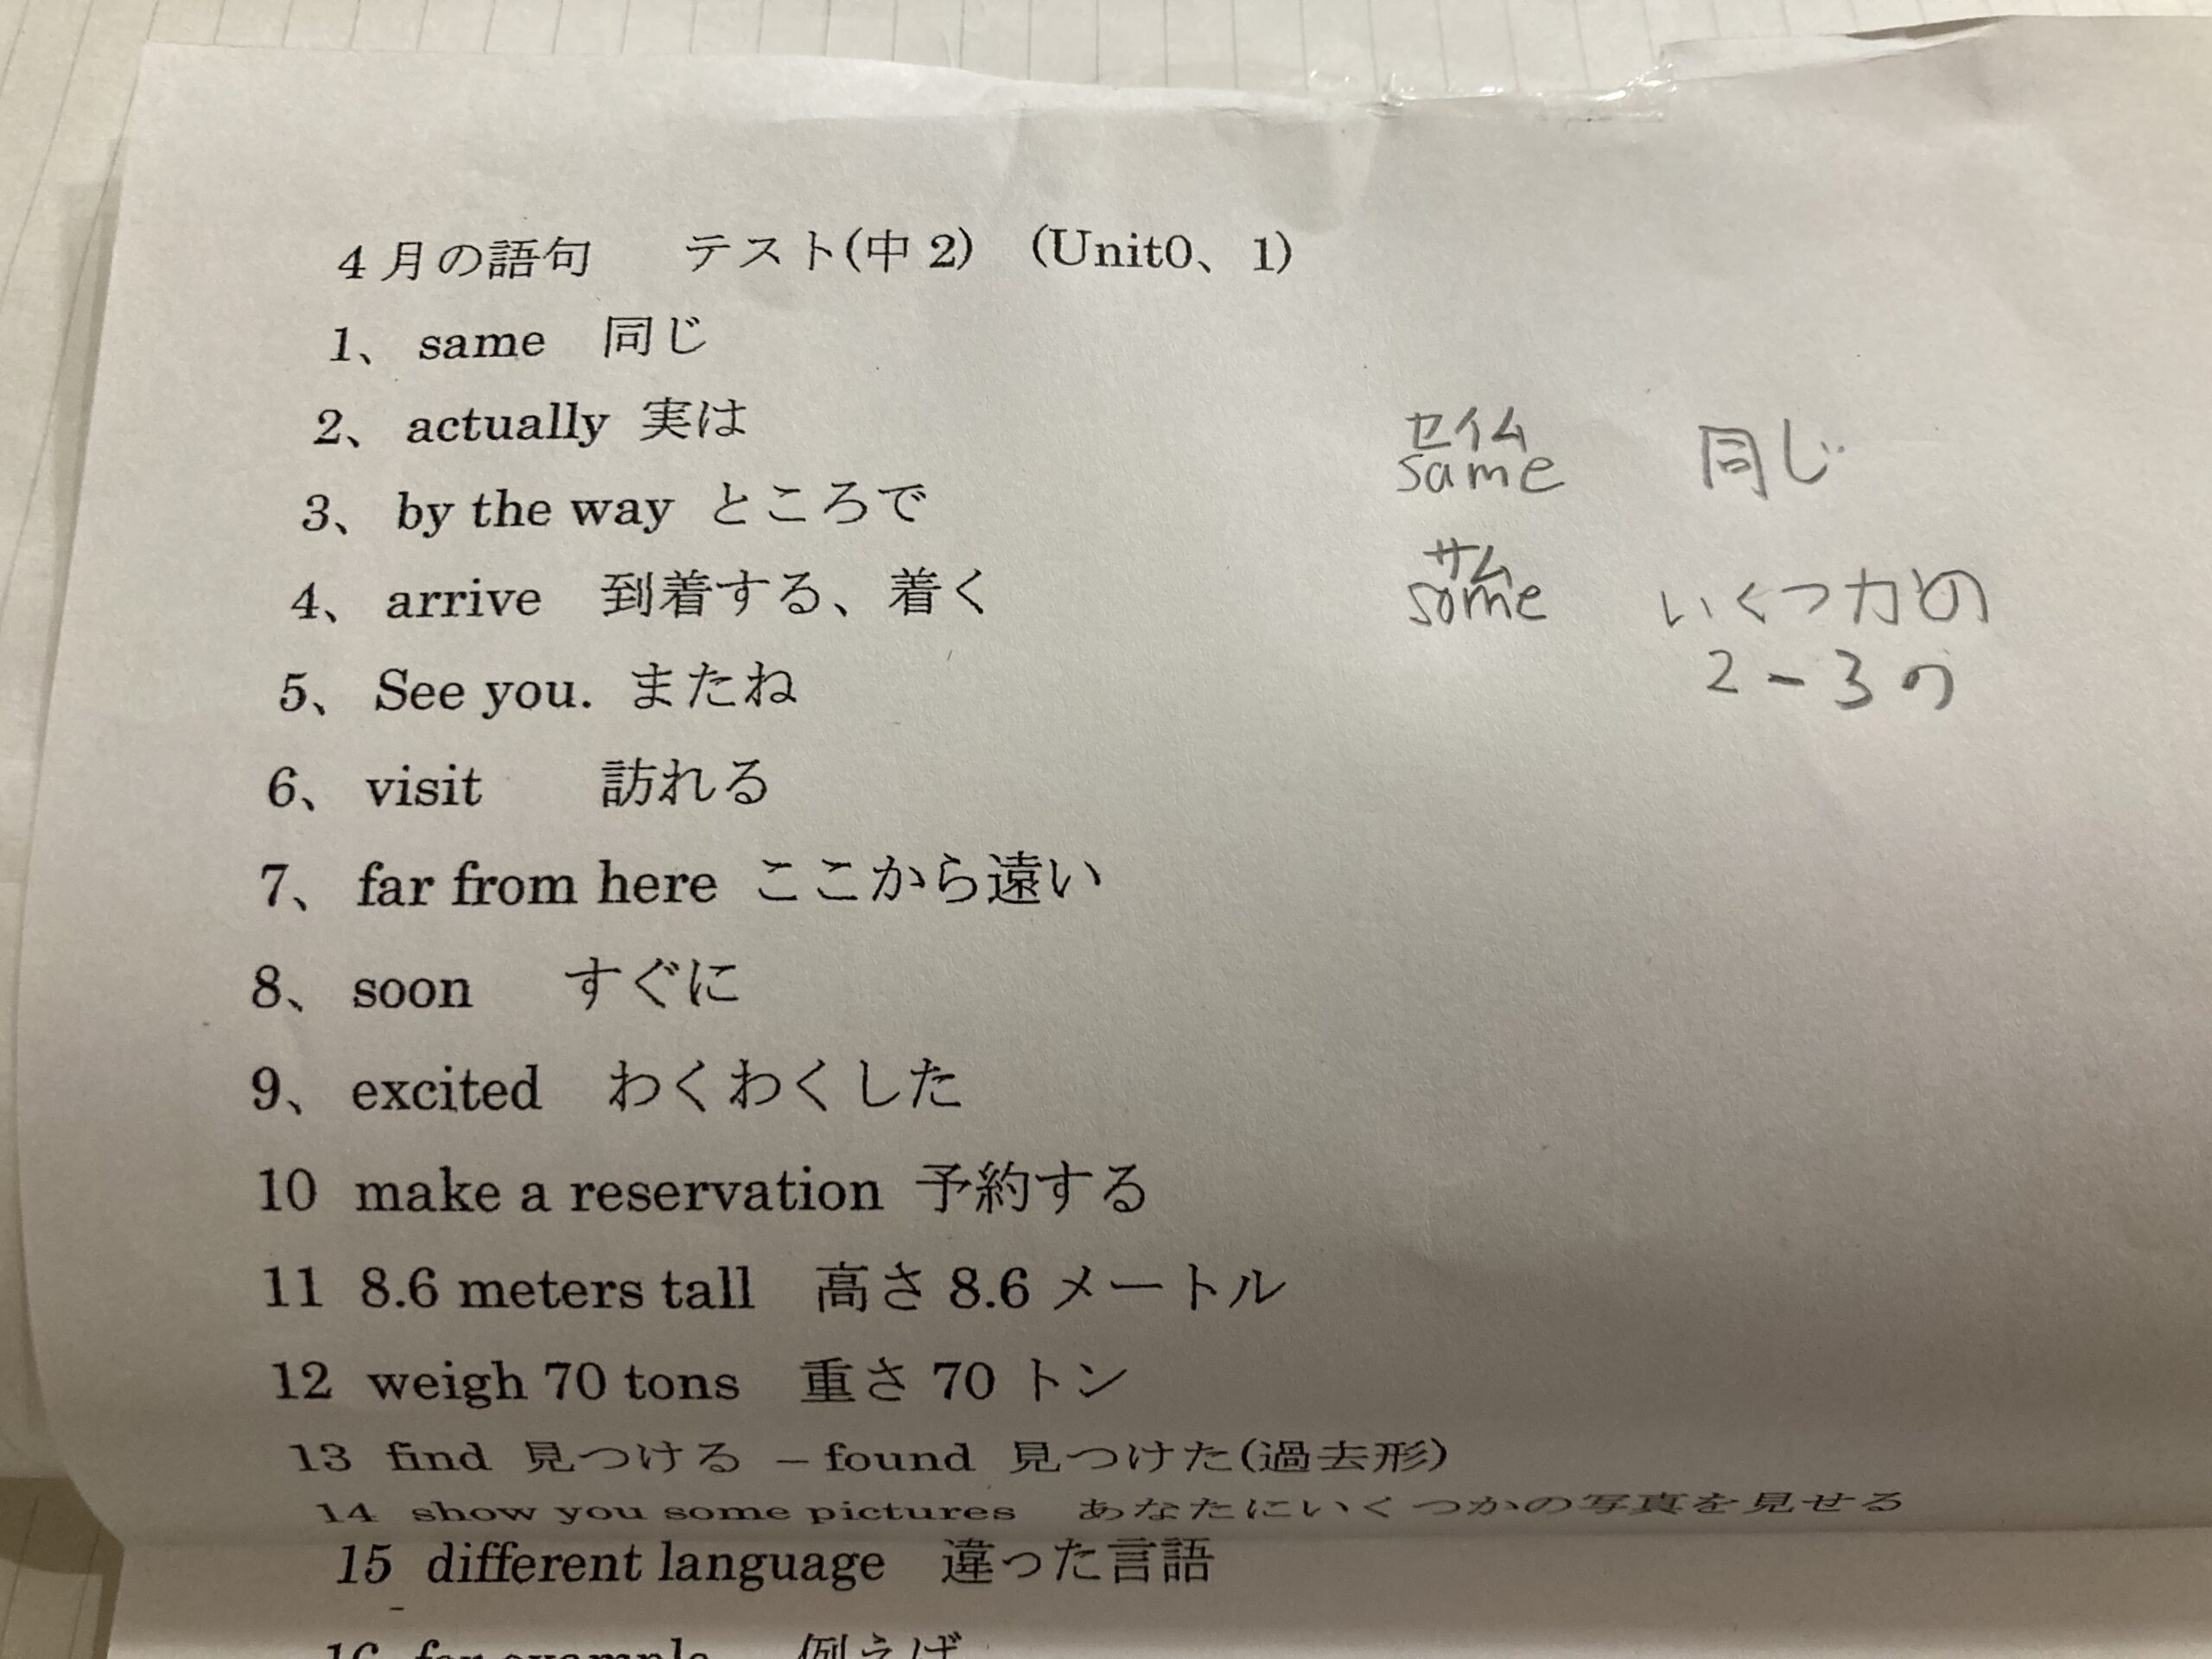 4月の語句　テスト(中2)　(Unit0、1)
1、same　同じ
2、actually 実は
3、by the way ところで
4、arrive　到着する、着く
5、See you. またね
6、visit　訪れる
7、far from here ここから遠い
8、soon　すぐに
9、excited　わくわくした
10 make a reservation 予約する
11 8.6 meters tall　高さ 8.6 メートル
12 weigh 70 tons　重さ 70 トン
13 find 見つける －found 見つけた(過去形)
14 show you some pictures　あなたにいくつかの写真を見せる
15 different language　違った言語
16 for example　例えば
セイム
same　同じ
サム
some　いくつカの
2-3の